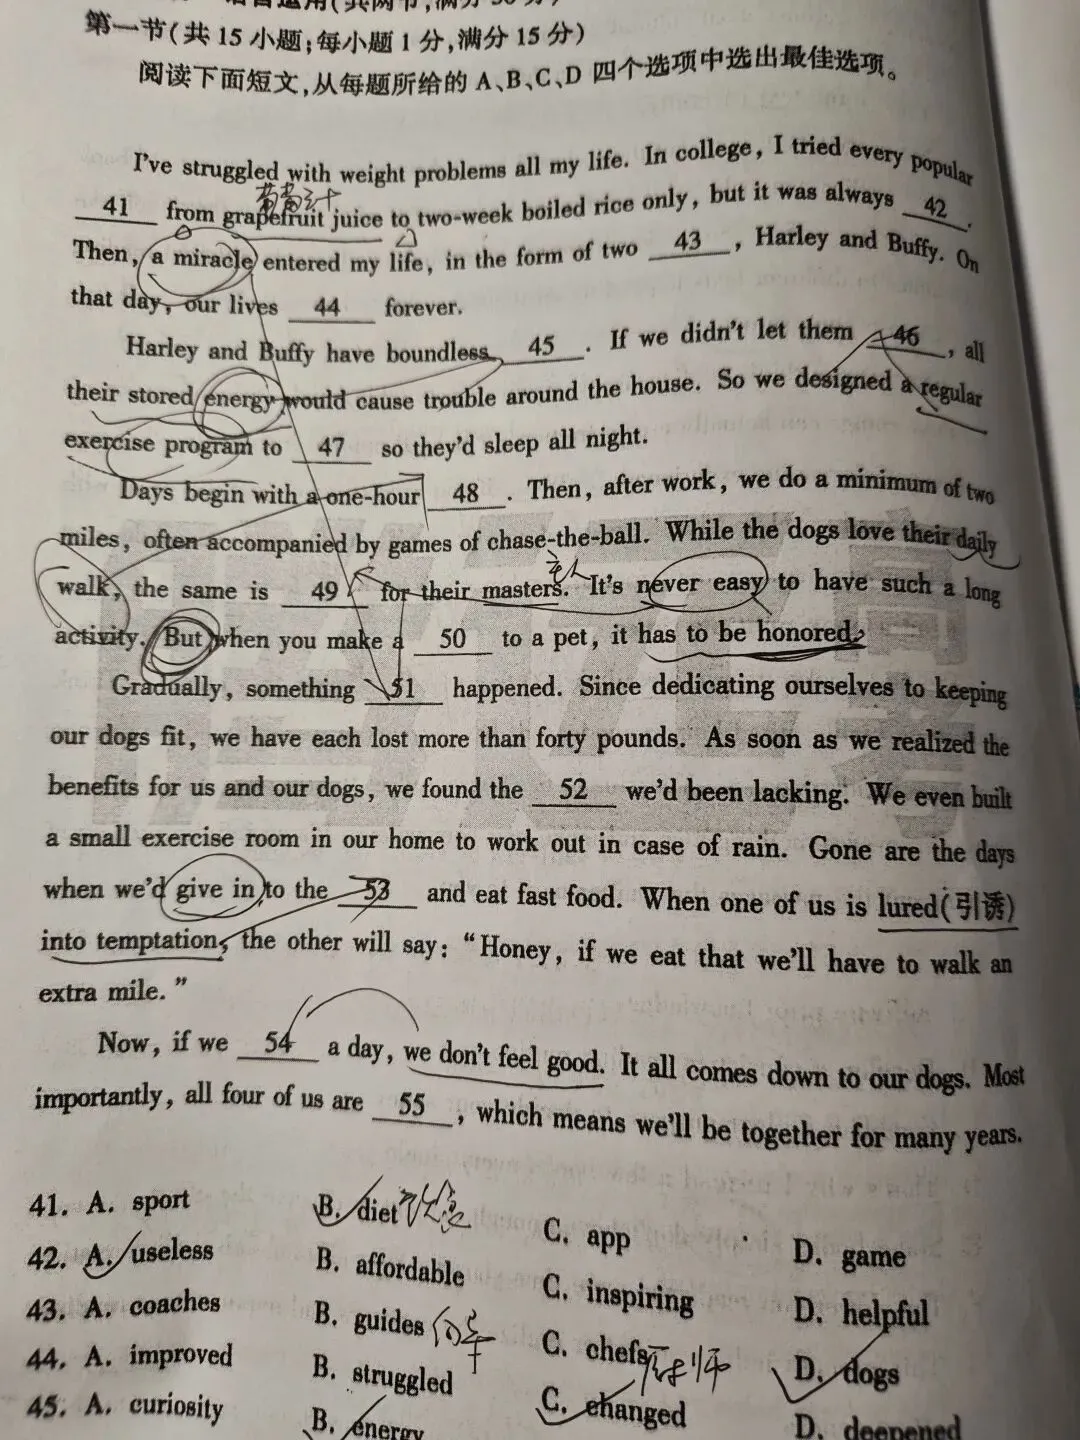 语言运用(共两节,满分30分)
第一节(共15小题;每小题1分,满分15分)
阅读下面短文,从每题所给的A、B、C、D四个选项中选出最佳选项。
I've struggled with weight problems all my life. In college, I tried every popular
41 from grapefruit juice to two-week boiled rice only, but it was always 42.
Then, a miracle entered my life, in the form of two 43, Harley and Buffy. On
that day, our lives 44 forever.
Harley and Buffy have boundless 45. If we didn't let them 46, all
their stored energy would cause trouble around the house. So we designed a regular
exercise program to 47 so they'd sleep all night.
Days begin with a one-hour 48. Then, after work, we do a minimum of two
miles, often accompanied by games of chase-the-ball. While the dogs love their daily
walk, the same is 49 for their masters. It's never easy to have such a long
activity. But when you make a 50 to a pet, it has to be honored.
Gradually, something 51 happened. Since dedicating ourselves to keeping
our dogs fit, we have each lost more than forty pounds. As soon as we realized the
benefits for us and our dogs, we found the 52 we'd been lacking. We even built
a small exercise room in our home to work out in case of rain. Gone are the days
when we'd give in to the 53 and eat fast food. When one of us is lured(引诱)
into temptation, the other will say: "Honey, if we eat that we'll have to walk an
extra mile."
Now, if we 54 a day, we don't feel good. It all comes down to our dogs. Most
importantly, all four of us are 55, which means we'll be together for many years.
41. A. sport B. diet C. app D. game
42. A. useless B. affordable C. inspiring D. helpful
43. A. coaches B. guides C. chefs 厨师 D. dogs
44. A. improved B. struggled C. changed D. deepened
45. A. curiosity B. energy